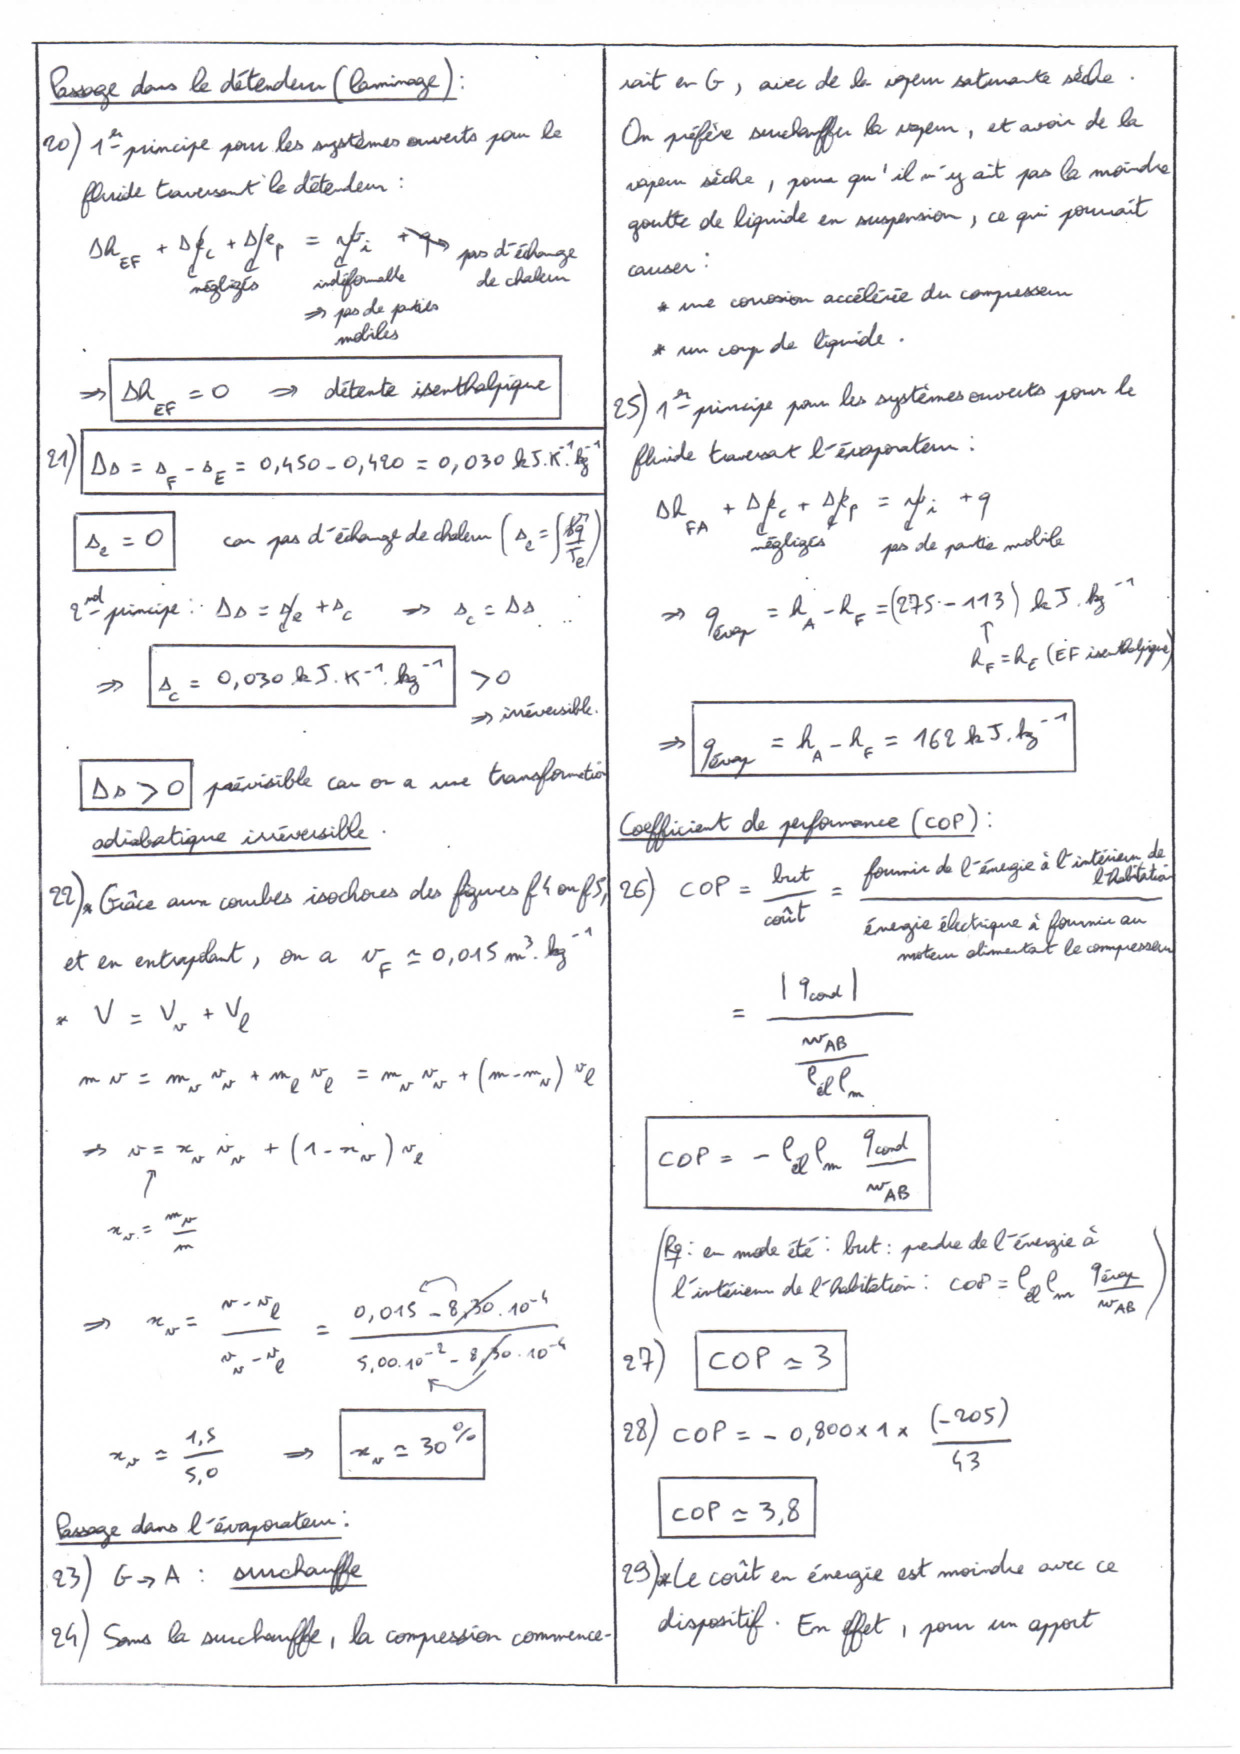 Passage dans le détendeur (laminage) :
20) 1er principe pour les systèmes ouverts pour le
fluide traversant le détendeur :
Δh_EF + Δe_c + Δe_p = w_i + q → pas d'échange
négligés indéformable de chaleur
⇒ pas de parties
mobiles
⇒ Δh_EF = 0 ⇒ détente isenthalpique
21) Δs = s_F - s_E = 0,450 - 0,420 = 0,030 kJ.K⁻¹.kg⁻¹
s_e = 0 car pas d'échange de chaleur (s_e = ∫ δq/T_e)
2nd principe : Δs = s_e + s_c ⇒ s_c = Δs
⇒ s_c = 0,030 kJ.K⁻¹.kg⁻¹ > 0
⇒ irréversible.
Δs > 0 prévisible car on a une transformation
adiabatique irréversible.
22) * Grâce aux courbes isochores des figures f4 ou f5,
et en extrapolant, on a v_F ≃ 0,015 m³.kg⁻¹
* V = V_v + V_l
m v = m_v v_v + m_l v_l = m_v v_v + (m - m_v) v_l
⇒ v = x_v v_v + (1 - x_v) v_l
↑
x_v = m_v/m
⇒ x_v = (v - v_l)/(v_v - v_l) = (0,015 - 8,30.10⁻⁴)/(5,00.10⁻² - 8,30.10⁻⁴)
x_v ≃ 1,5/5,0 ⇒ x_v ≃ 30 %
Passage dans l'évaporateur :
23) G → A : surchauffe
24) Sans la surchauffe, la compression commence-
rait en G, avec de la vapeur saturante sèche.
On préfère surchauffer la vapeur, et avoir de la
vapeur sèche, pour qu'il n'y ait pas la moindre
goutte de liquide en suspension, ce qui pourrait
causer :
* une corrosion accélérée du compresseur
* un coup de liquide.
25) 1er principe pour les systèmes ouverts pour le
fluide traversant l'évaporateur :
Δh_FA + Δe_c + Δe_p = w_i + q
négligés pas de partie mobile
⇒ q_évap = h_A - h_F = (275 - 113) kJ.kg⁻¹
↑
h_F = h_E (EF isenthalpique)
⇒ q_évap = h_A - h_F = 162 kJ.kg⁻¹
Coefficient de performance (COP) :
26) COP = but/coût = fournir de l'énergie à l'intérieur de
l'habitation
énergie électrique à fournir au
moteur alimentant le compresseur
= |q_cond| / (w_AB/(ρ_él ρ_m))
COP = - ρ_él ρ_m q_cond/w_AB
(Rq : en mode été : but : perdre de l'énergie à
l'intérieur de l'habitation : COP = ρ_él ρ_m q_évap/w_AB)
27) COP ≃ 3
28) COP = - 0,800 × 1 × (-205)/43
COP ≃ 3,8
29) * Le coût en énergie est moindre avec ce
dispositif. En effet, pour un apport